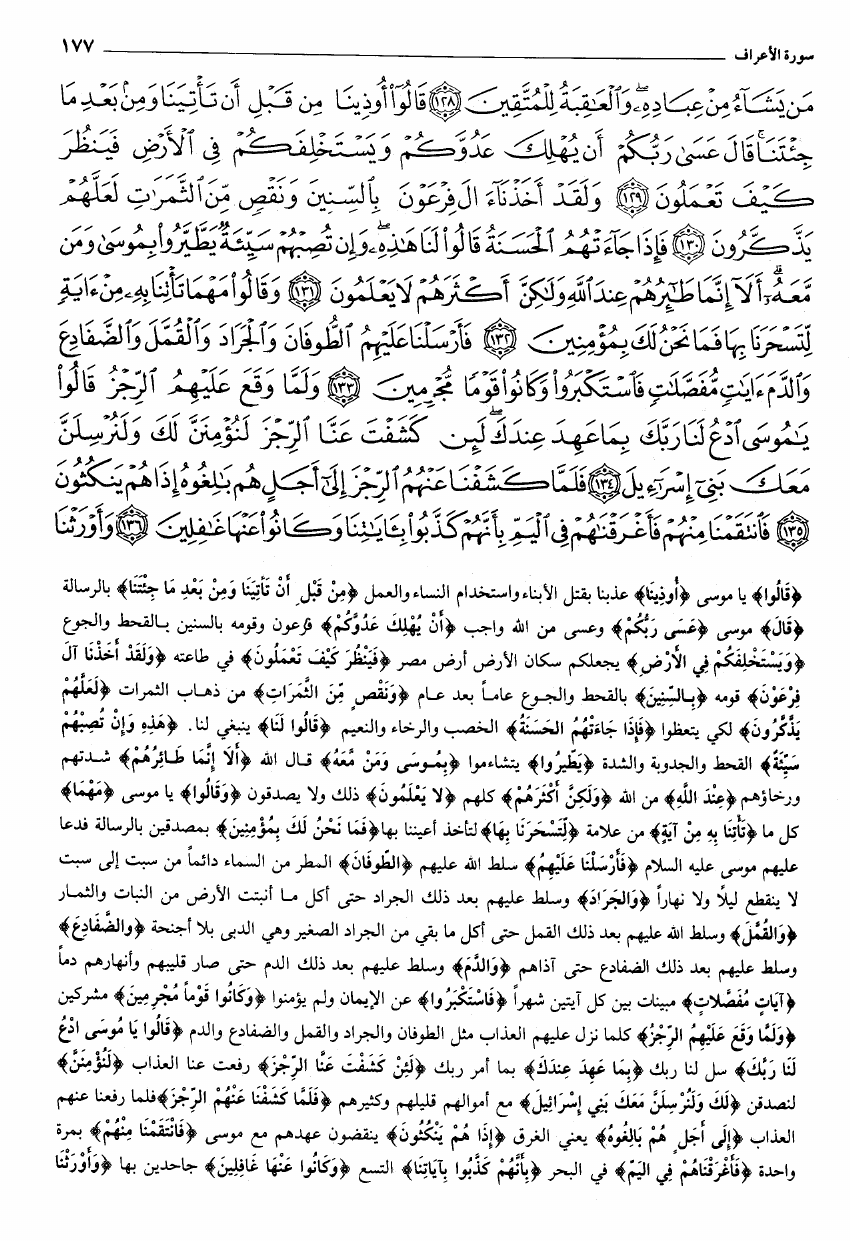 سورة الأعراف ١٧٧
مَن يَشَآءُ مِنْ عِبَادِهِۦ ۖ وَٱلْعَٰقِبَةُ لِلْمُتَّقِينَ ١٢٨ قَالُوٓا۟ أُوذِينَا مِن قَبْلِ أَن تَأْتِيَنَا وَمِنۢ بَعْدِ مَا
جِئْتَنَا ۚ قَالَ عَسَىٰ رَبُّكُمْ أَن يُهْلِكَ عَدُوَّكُمْ وَيَسْتَخْلِفَكُمْ فِى ٱلْأَرْضِ فَيَنظُرَ
كَيْفَ تَعْمَلُونَ ١٢٩ وَلَقَدْ أَخَذْنَآ ءَالَ فِرْعَوْنَ بِٱلسِّنِينَ وَنَقْصٍ مِّنَ ٱلثَّمَرَٰتِ لَعَلَّهُمْ
يَذَّكَّرُونَ ١٣٠ فَإِذَا جَآءَتْهُمُ ٱلْحَسَنَةُ قَالُوا۟ لَنَا هَٰذِهِۦ ۖ وَإِن تُصِبْهُمْ سَيِّئَةٌ يَطَّيَّرُوا۟ بِمُوسَىٰ وَمَن
مَّعَهُۥٓ ۗ أَلَآ إِنَّمَا طَٰٓئِرُهُمْ عِندَ ٱللَّهِ وَلَٰكِنَّ أَكْثَرَهُمْ لَا يَعْلَمُونَ ١٣١ وَقَالُوا۟ مَهْمَا تَأْتِنَا بِهِۦ مِنْ ءَايَةٍ
لِّتَسْحَرَنَا بِهَا فَمَا نَحْنُ لَكَ بِمُؤْمِنِينَ ١٣٢ فَأَرْسَلْنَا عَلَيْهِمُ ٱلطُّوفَانَ وَٱلْجَرَادَ وَٱلْقُمَّلَ وَٱلضَّفَادِعَ
وَٱلدَّمَ ءَايَٰتٍ مُّفَصَّلَٰتٍ فَٱسْتَكْبَرُوا۟ وَكَانُوا۟ قَوْمًا مُّجْرِمِينَ ١٣٣ وَلَمَّا وَقَعَ عَلَيْهِمُ ٱلرِّجْزُ قَالُوا۟
يَٰمُوسَى ٱدْعُ لَنَا رَبَّكَ بِمَا عَهِدَ عِندَكَ ۖ لَئِن كَشَفْتَ عَنَّا ٱلرِّجْزَ لَنُؤْمِنَنَّ لَكَ وَلَنُرْسِلَنَّ
مَعَكَ بَنِىٓ إِسْرَٰٓءِيلَ ١٣٤ فَلَمَّا كَشَفْنَا عَنْهُمُ ٱلرِّجْزَ إِلَىٰٓ أَجَلٍ هُم بَٰلِغُوهُ إِذَا هُمْ يَنكُثُونَ
١٣٥ فَٱنتَقَمْنَا مِنْهُمْ فَأَغْرَقْنَٰهُمْ فِى ٱلْيَمِّ بِأَنَّهُمْ كَذَّبُوا۟ بِـَٔايَٰتِنَا وَكَانُوا۟ عَنْهَا غَٰفِلِينَ ١٣٦ وَأَوْرَثْنَا
﴿قَالُوا﴾ يا موسى ﴿أُوذِينَا﴾ عذبنا بقتل الأبناء واستخدام النساء والعمل ﴿مِنْ قَبْلِ أَنْ تَأْتِيَنَا وَمِنْ بَعْدِ مَا جِئْتَنَا﴾ بالرسالة
﴿قَالَ﴾ موسى ﴿عَسَى رَبُّكُمْ﴾ وعسى من الله واجب ﴿أَنْ يُهْلِكَ عَدُوَّكُمْ﴾ فرعون وقومه بالسنين بالقحط والجوع
﴿وَيَسْتَخْلِفَكُمْ فِي الأَرْضِ﴾ يجعلكم سكان الأرض أرض مصر ﴿فَيَنْظُرَ كَيْفَ تَعْمَلُونَ﴾ في طاعته ﴿وَلَقَدْ أَخَذْنَا آلَ
فِرْعَوْنَ﴾ قومه ﴿بِالسِّنِينَ﴾ بالقحط والجوع عاماً بعد عام ﴿وَنَقْصٍ مِّنَ الثَّمَرَاتِ﴾ من ذهاب الثمرات ﴿لَعَلَّهُمْ
يَذَّكَّرُونَ﴾ لكي يتعظوا ﴿فَإِذَا جَاءَتْهُمُ الحَسَنَةُ﴾ الخصب والرخاء والنعيم ﴿قَالُوا لَنَا﴾ ينبغي لنا. ﴿هَذِهِ وَإِنْ تُصِبْهُمْ
سَيِّئَةٌ﴾ القحط والجدوبة والشدة ﴿يَطَّيَّرُوا﴾ يتشاءموا ﴿بِمُوسَى وَمَنْ مَّعَهُ﴾ قال الله ﴿أَلَا إِنَّمَا طَائِرُهُمْ﴾ شدتهم
ورخاؤهم ﴿عِنْدَ اللَّهِ﴾ من الله ﴿وَلَكِنَّ أَكْثَرَهُمْ﴾ كلهم ﴿لا يَعْلَمُونَ﴾ ذلك ولا يصدقون ﴿وَقَالُوا﴾ يا موسى ﴿مَهْمَا﴾
كل ما ﴿تَأْتِنَا بِهِ مِنْ آيَةٍ﴾ من علامة ﴿لِّتَسْحَرَنَا بِهَا﴾ لتأخذ أعيننا بها ﴿فَمَا نَحْنُ لَكَ بِمُؤْمِنِينَ﴾ بمصدقين بالرسالة فدعا
عليهم موسى عليه السلام ﴿فَأَرْسَلْنَا عَلَيْهِمُ﴾ سلط الله عليهم ﴿الطُّوفَانَ﴾ المطر من السماء دائماً من سبت إلى سبت
لا ينقطع ليلاً ولا نهاراً ﴿وَالجَرَادَ﴾ وسلط عليهم بعد ذلك الجراد حتى أكل ما أنبتت الأرض من النبات والثمار
﴿وَالقُمَّلَ﴾ وسلط الله عليهم بعد ذلك القمل حتى أكل ما بقي من الجراد الصغير وهي الدبى بلا أجنحة ﴿وَالضَّفَادِعَ﴾
وسلط عليهم بعد ذلك الضفادع حتى آذاهم ﴿وَالدَّمَ﴾ وسلط عليهم بعد ذلك الدم حتى صار قليبهم وأنهارهم دماً
﴿آيَاتٍ مُّفَصَّلاتٍ﴾ مبينات بين كل آيتين شهراً ﴿فَاسْتَكْبَرُوا﴾ عن الإيمان ولم يؤمنوا ﴿وَكَانُوا قَوْماً مُجْرِمِينَ﴾ مشركين
﴿وَلَمَّا وَقَعَ عَلَيْهِمُ الرِّجْزُ﴾ كلما نزل عليهم العذاب مثل الطوفان والجراد والقمل والضفادع والدم ﴿قَالُوا يَا مُوسَى ادْعُ
لَنَا رَبَّكَ﴾ سل لنا ربك ﴿بِمَا عَهِدَ عِندَكَ﴾ بما أمر ربك ﴿لَئِنْ كَشَفْتَ عَنَّا الرِّجْزَ﴾ رفعت عنا العذاب ﴿لَنُؤْمِنَنَّ﴾
لنصدقن ﴿لَكَ وَلَنُرْسِلَنَّ مَعَكَ بَنِي إِسْرَائِيلَ﴾ مع أموالهم قليلهم وكثيرهم ﴿فَلَمَّا كَشَفْنَا عَنْهُمُ الرِّجْزَ﴾ فلما رفعنا عنهم
العذاب ﴿إِلَى أَجَلٍ هُمْ بَالِغُوهُ﴾ يعني الغرق ﴿إِذَا هُمْ يَنْكُثُونَ﴾ ينقضون عهدهم مع موسى ﴿فَانْتَقَمْنَا مِنْهُمْ﴾ بمرة
واحدة ﴿فَأَغْرَقْنَاهُمْ فِي اليَمِّ﴾ في البحر ﴿بِأَنَّهُمْ كَذَّبُوا بِآيَاتِنَا﴾ التسع ﴿وَكَانُوا عَنْهَا غَافِلِينَ﴾ جاحدين بها ﴿وَأَوْرَثْنَا